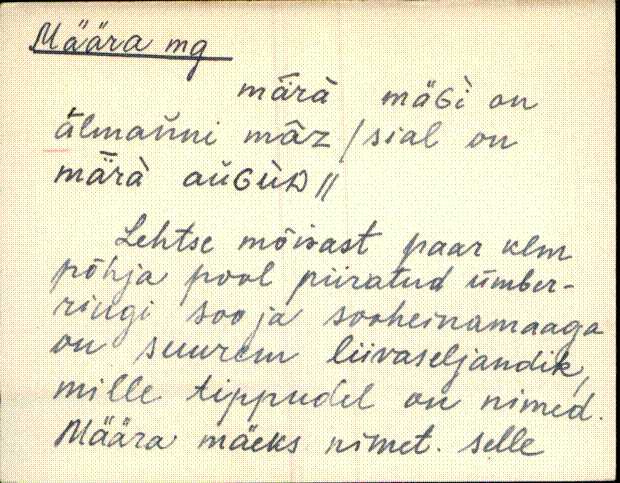 Määra mg
mǟrà mäGì on
älmaǜni mâz / sial on
mǟrà aǔGùD //
Lehtse mõisast paar klm
põhja pool piiratud ümber-
ringi soo ja sooheinamaaga
on suurem liivaseljandik,
mille tippudel on nimed.
Määra mäeks nimet. selle